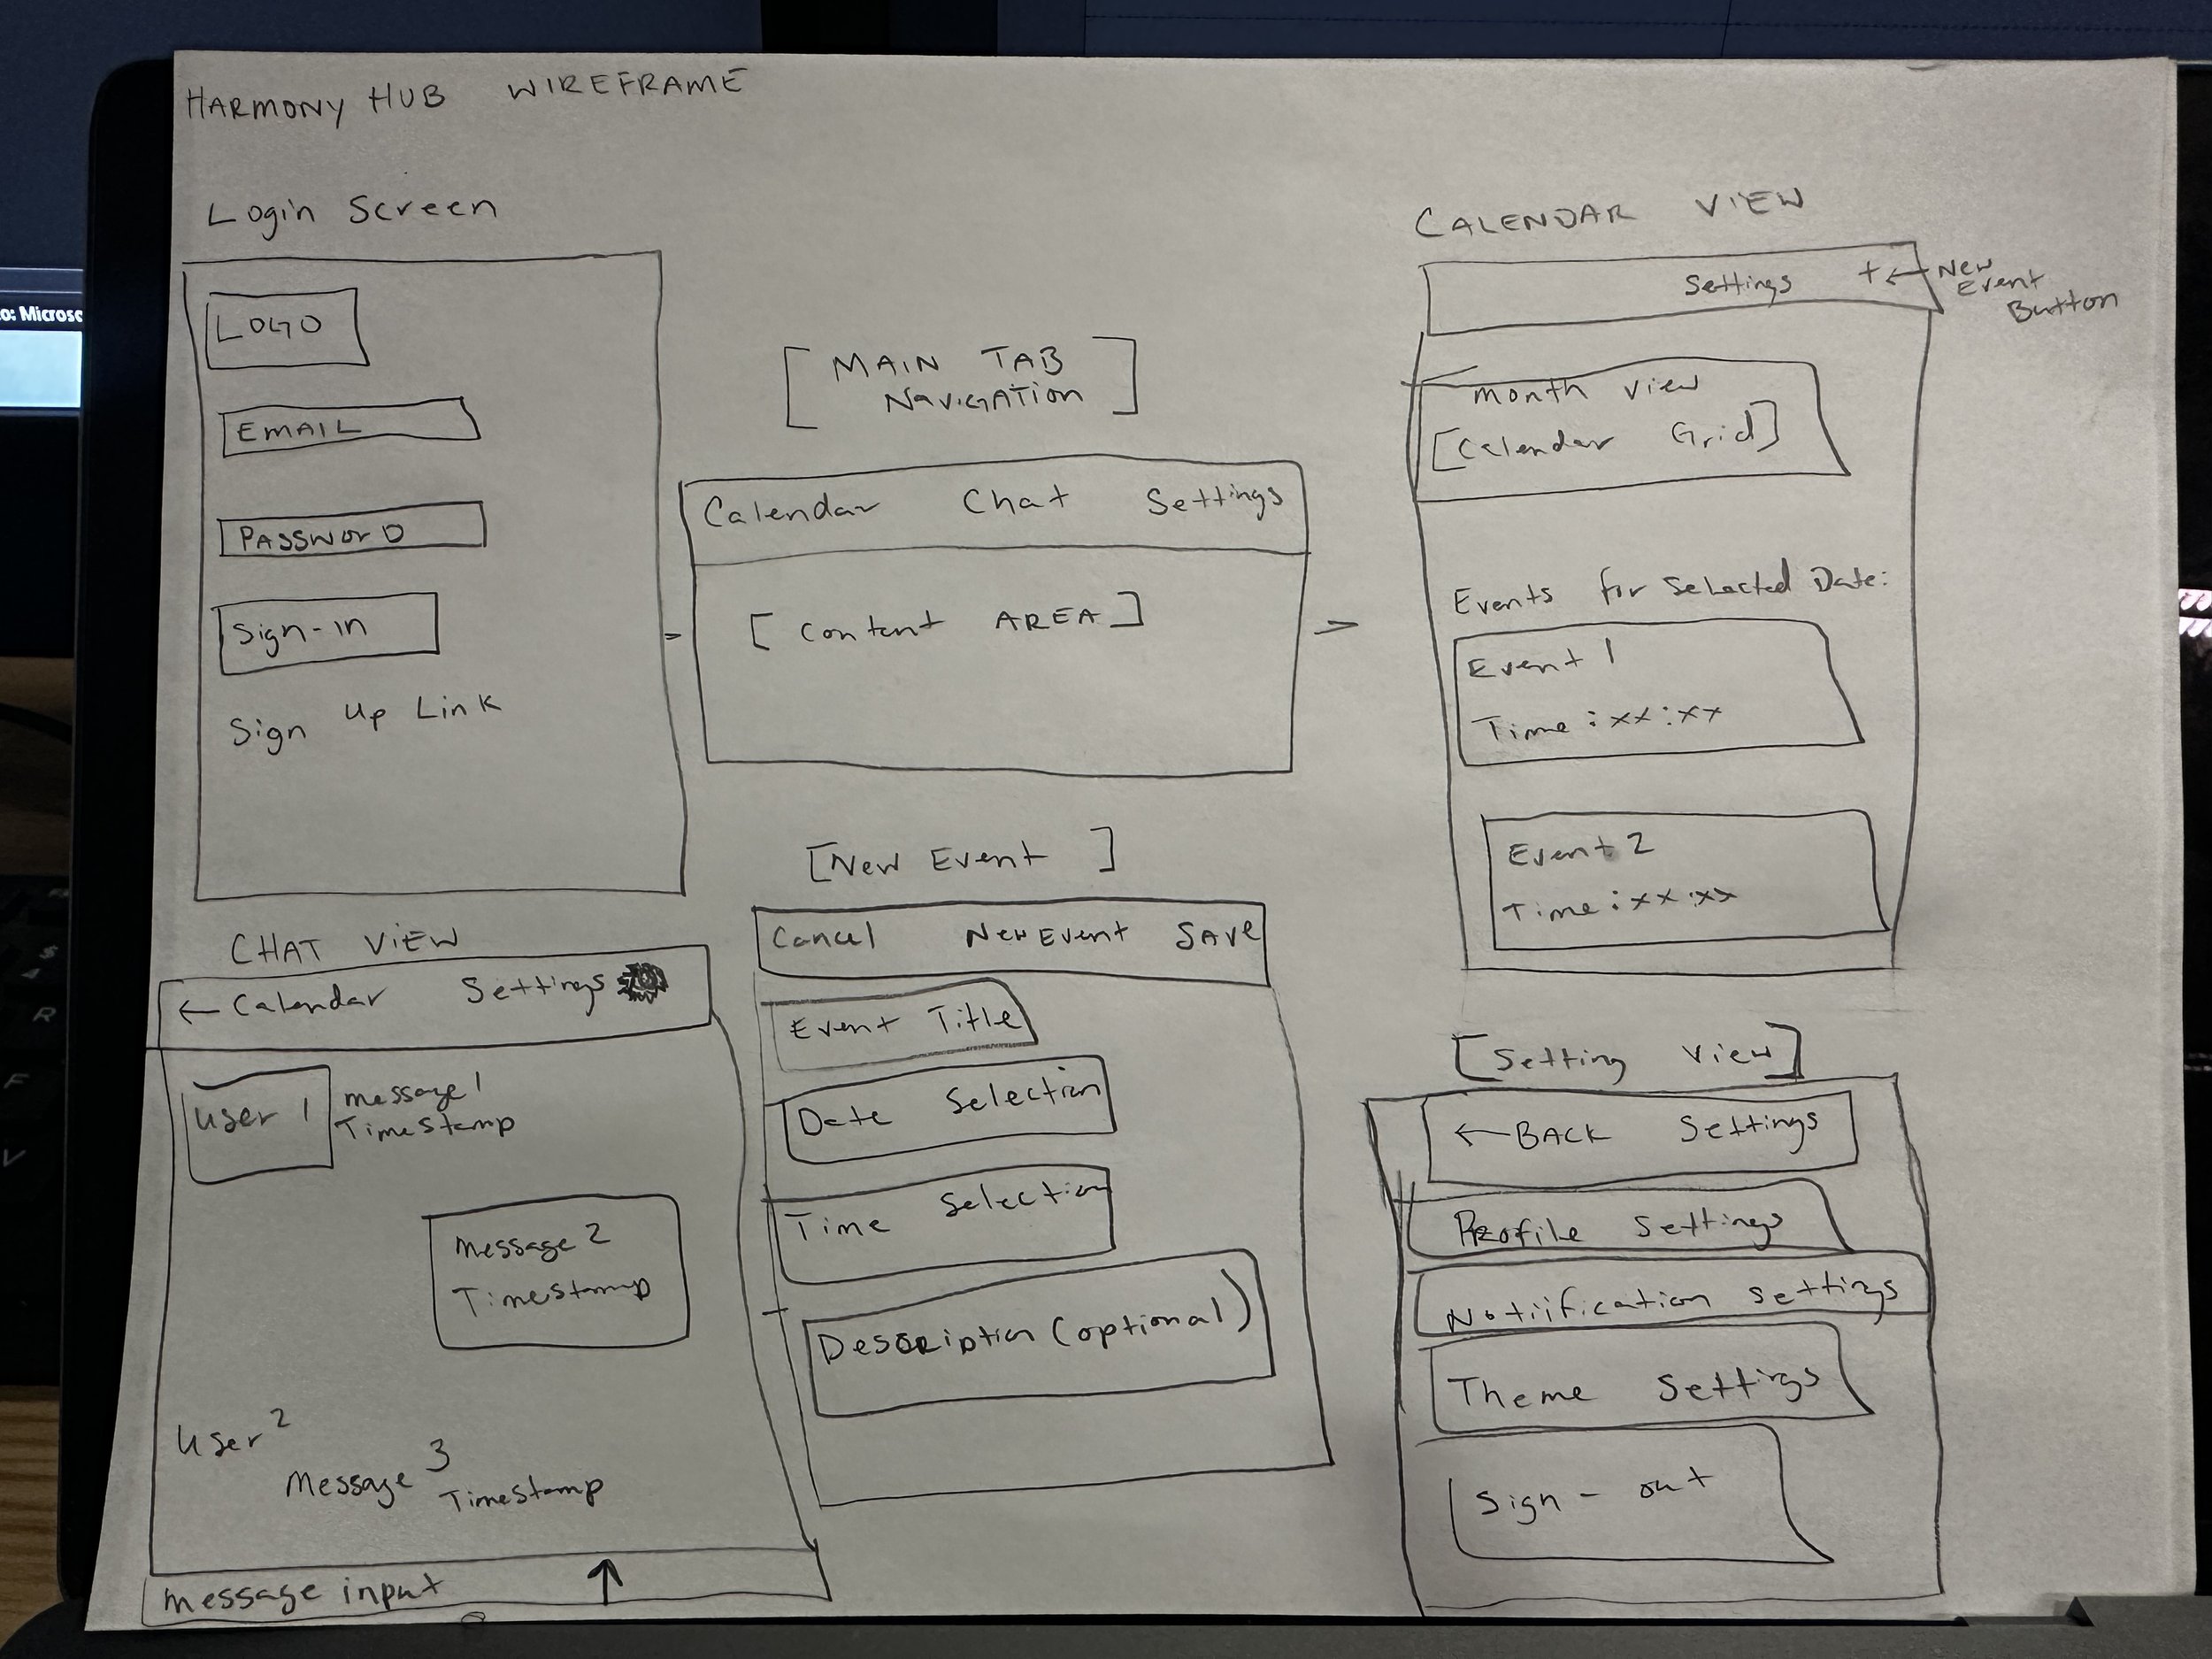 HARMONY HUB WIREFRAME
Login Screen
LOGO
EMAIL
PASSWORD
Sign-in
Sign Up Link
[MAIN TAB
NAVIGATION]
Calendar Chat Settings
[Content AREA]
CALENDAR VIEW
Settings + ← New
Event
Button
month view
[Calendar Grid]
Events for Selected Date:
Event 1
Time: xx:xx
Event 2
Time: xx:xx
CHAT VIEW
← Calendar Settings
User 1
message 1
TimeStamp
Message 2
TimeStamp
User 2
Message 3
TimeStamp
message input ↑
[New Event]
Cancel New Event Save
Event Title
Date Selection
Time Selection
Description (optional)
[Setting View]
← BACK Settings
Profile Settings
Notiification Settings
Theme Settings
Sign-out
o: Microsc